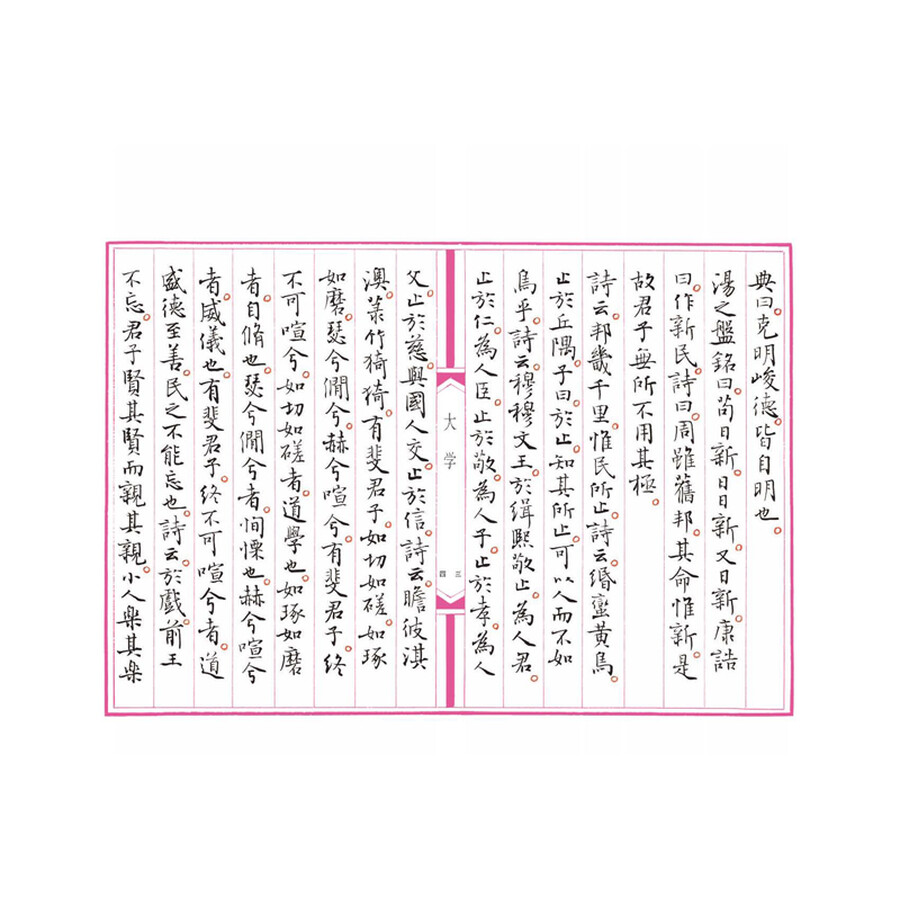 典曰。克明峻德。皆自明也。
湯之盤銘曰。苟日新。日日新。又日新。康誥
曰。作新民。詩曰。周雖舊邦。其命惟新。是
故君子無所不用其極。
詩云。邦畿千里。惟民所止。詩云。緡蠻黃鳥。
止於丘隅。子曰。於止。知其所止。可以人而不如
鳥乎。詩云。穆穆文王。於緝熙敬止。為人君。
止於仁。為人臣。止於敬。為人子。止於孝。為人
大学
三
四
父。止於慈。與國人交。止於信。詩云。瞻彼淇
澳。菉竹猗猗。有斐君子。如切如磋。如琢
如磨。瑟兮僩兮。赫兮喧兮。有斐君子。終
不可喧兮。如切如磋者。道學也。如琢如磨
者。自脩也。瑟兮僩兮者。恂慄也。赫兮喧兮
者。威儀也。有斐君子。終不可喧兮者。道
盛德至善。民之不能忘也。詩云。於戲。前王
不忘。君子賢其賢而親其親。小人樂其樂